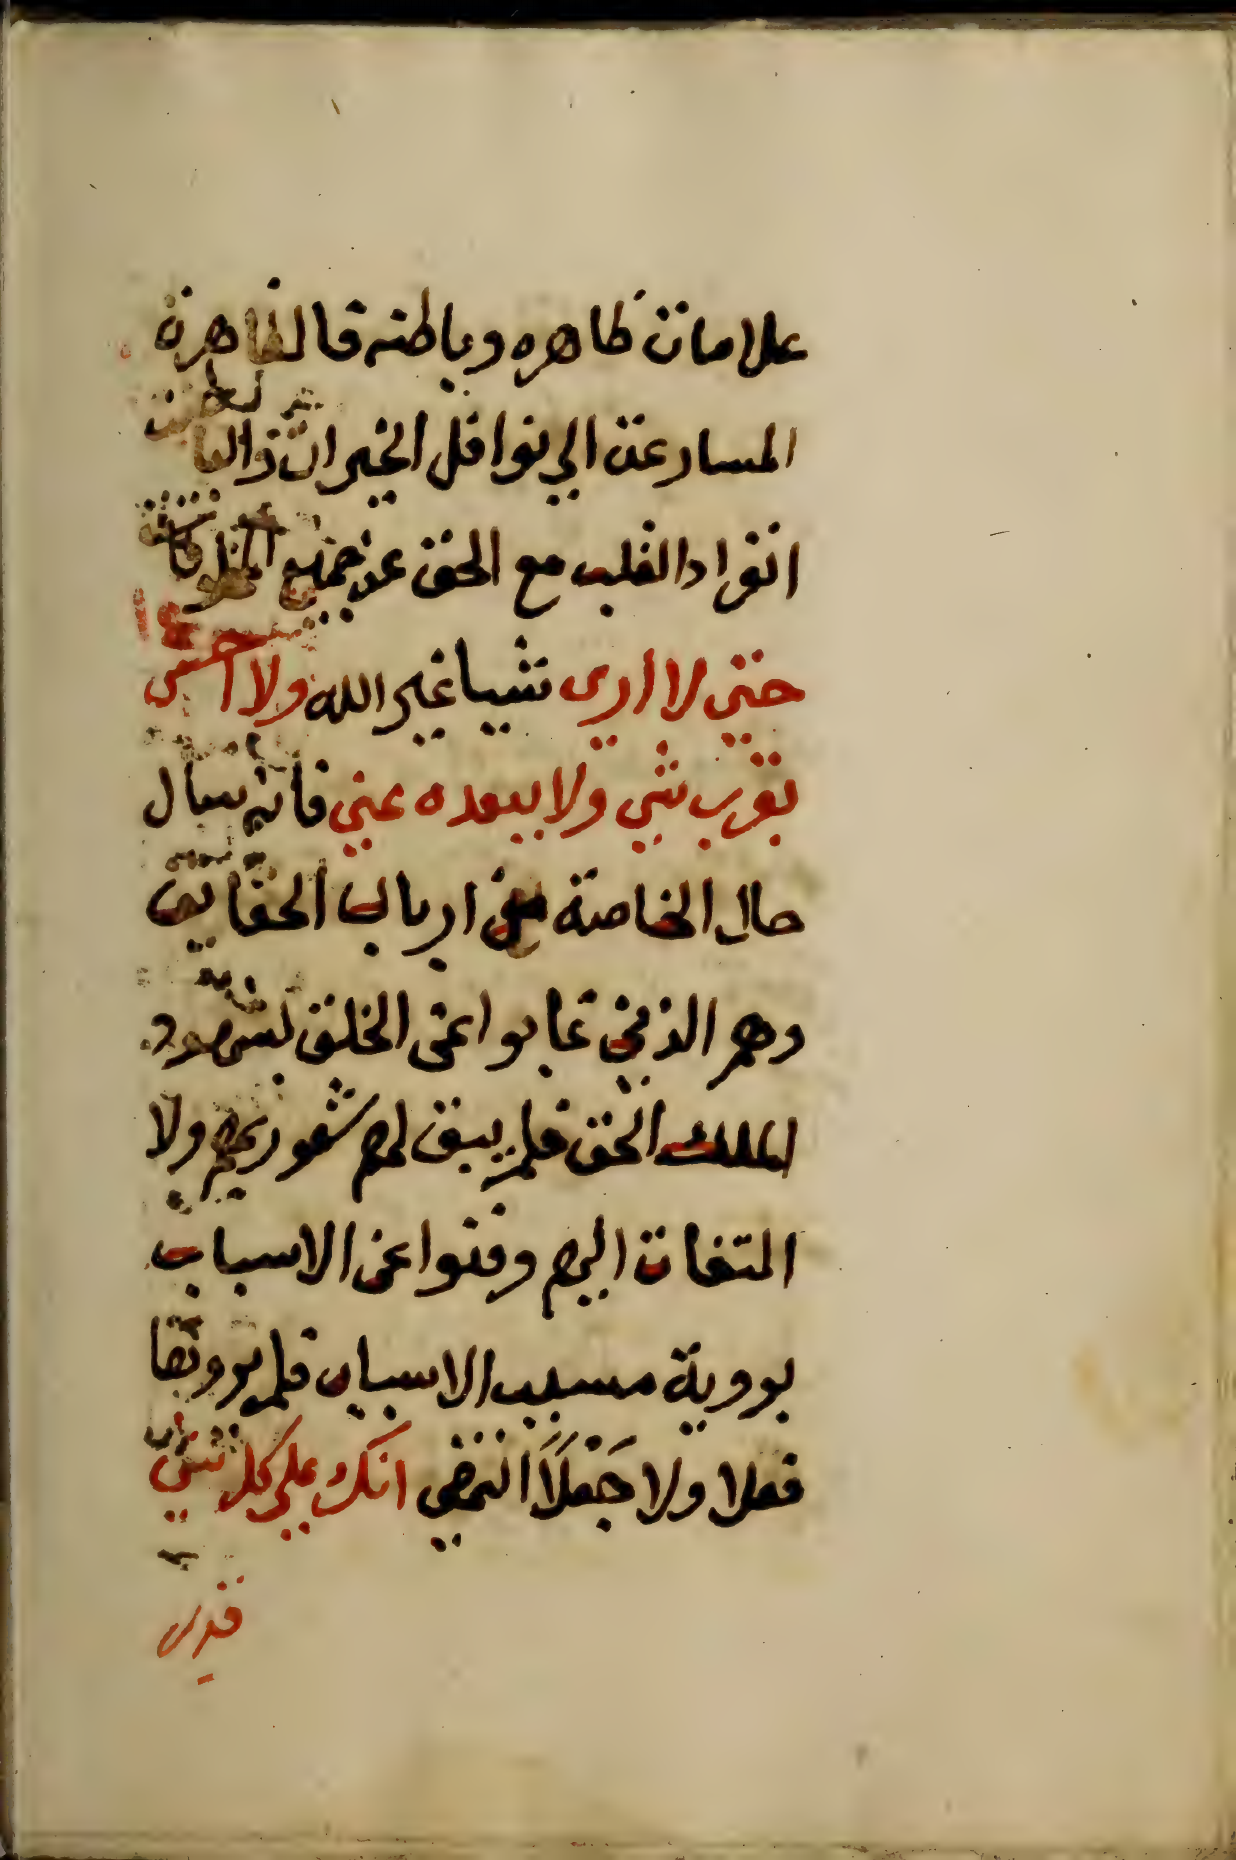 علامات ظاهره وباطنه فالظاهرة
المسارعة الي نوافل الخيرات والبا
طنت
انفراد القلب مع الحق عن جميع المخلوقا
حتي لا اري شيا غير الله ولا احس
بقرب شي ولا ببعده عني فانه سال
حال الخاصة من ارباب الحقايق
وهم الذين غابوا عن الخلق بشهود
الملك الحق فلم يبق لهم شعور بهم ولا
التفات اليهم وفنوا عن الاسباب
بروية مسبب الاسباب فلم يرو لها
فعلا ولا جَعْلاً انتهي انك علي كل شي
قدير